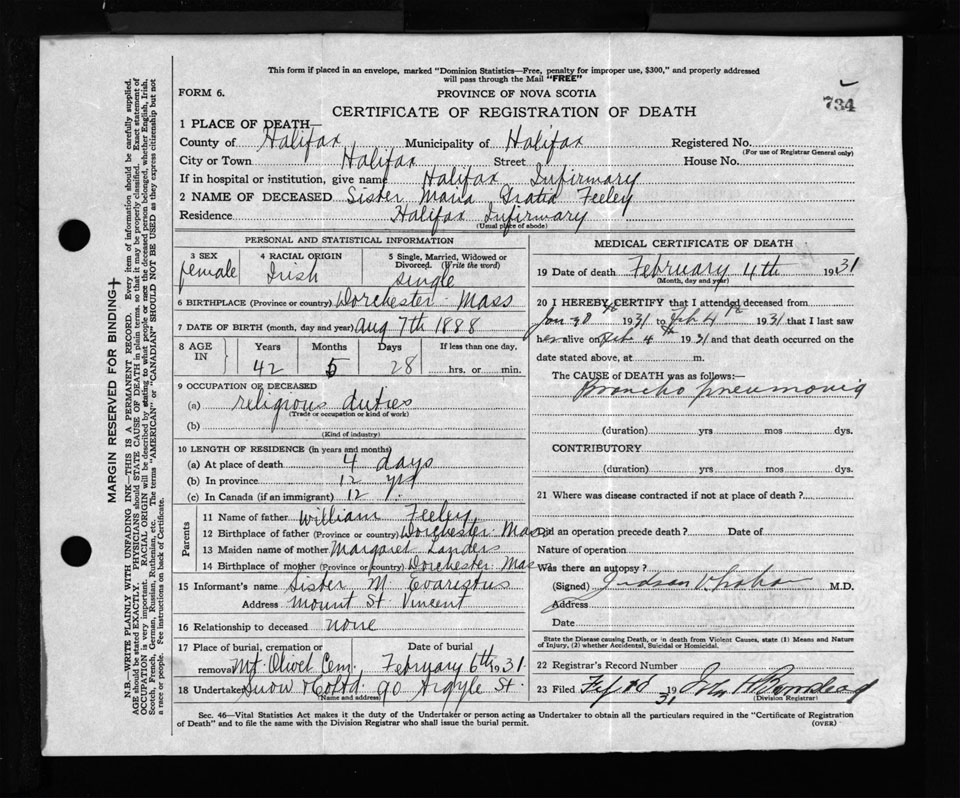 This form if placed in an envelope, marked "Dominion Statistics—Free, penalty for improper use, $300," and properly addressed
will pass through the Mail "FREE"
FORM 6.
PROVINCE OF NOVA SCOTIA
734
CERTIFICATE OF REGISTRATION OF DEATH
1 PLACE OF DEATH—
County of Halifax Municipality of Halifax Registered No.
(For use of Registrar General only)
City or Town Halifax Street House No.
If in hospital or institution, give name Halifax Infirmary
2 NAME OF DECEASED Sister Maria Gratia Feeley
Residence Halifax Infirmary
(Usual place of abode)
PERSONAL AND STATISTICAL INFORMATION
3 SEX
female
4 RACIAL ORIGIN
Irish
5 Single, Married, Widowed or
Divorced. (Write the word)
Single
6 BIRTHPLACE (Province or country) Dorchester Mass
7 DATE OF BIRTH (month, day and year) Aug 7th 1888
8 AGE IN
Years Months Days If less than one day.
42 5 28 hrs. or min.
9 OCCUPATION OF DECEASED
(a) religious duties
(Trade or occupation or kind of work)
(b)
(Kind of industry)
10 LENGTH OF RESIDENCE (in years and months)
(a) At place of death 4 days
(b) In province 12 yrs
(c) In Canada (if an immigrant) 12 y.
Parents
11 Name of father William Feeley
12 Birthplace of father (Province or country) Dorchester Mass
13 Maiden name of mother Margaret Landers
14 Birthplace of mother (Province or country) Dorchester Mass
15 Informant's name Sister M. Evaristus
Address Mount St Vincent
16 Relationship to deceased none
17 Place of burial, cremation or Date of burial
removal Mt. Olivet Cem. February 6th 1931.
18 Undertaker Snow & Co Ltd. 90 Argyle St.
(Name and address)
MEDICAL CERTIFICATE OF DEATH
19 Date of death February 4th 1931
(Month, day and year)
20 I HEREBY CERTIFY that I attended deceased from
Jan 30th 1931 to Feb 4th 1931 that I last saw
her alive on Feb. 4th 1931 and that death occurred on the
date stated above, at m.
The CAUSE of DEATH was as follows:—
Broncho pneumonia
(duration) yrs mos dys.
CONTRIBUTORY
(duration) yrs mos dys.
21 Where was disease contracted if not at place of death?
Did an operation precede death? Date of
Nature of operation
Was there an autopsy?
(Signed) Judson V. Graham M.D.
Address
Date
State the Disease causing Death, or in death from Violent Causes, state (1) Means and Nature
of Injury, (2) whether Accidental, Suicidal or Homicidal.
22 Registrar's Record Number
23 Filed 1931
(Division Registrar)
Sec. 46—Vital Statistics Act makes it the duty of the Undertaker or person acting as Undertaker to obtain all the particulars required in the "Certificate of Registration
of Death" and to file the same with the Division Registrar who shall issue the burial permit.
(OVER)
MARGIN RESERVED FOR BINDING
N.B.—WRITE PLAINLY WITH UNFADING INK—THIS IS A PERMANENT RECORD. Every item of information should be carefully supplied.
AGE should be stated EXACTLY. PHYSICIANS should STATE CAUSE OF DEATH in plain terms, so that it may be properly classified. Exact statement of
OCCUPATION is very important. RACIAL ORIGIN will be described by stating to what people or race the deceased person belonged, whether English, Irish,
Scotch, French, German, Russian, Ruthenian, etc. The terms "AMERICAN" or "CANADIAN" SHOULD NOT BE USED as they express citizenship but not
a race or people. See instructions on back of Certificate.